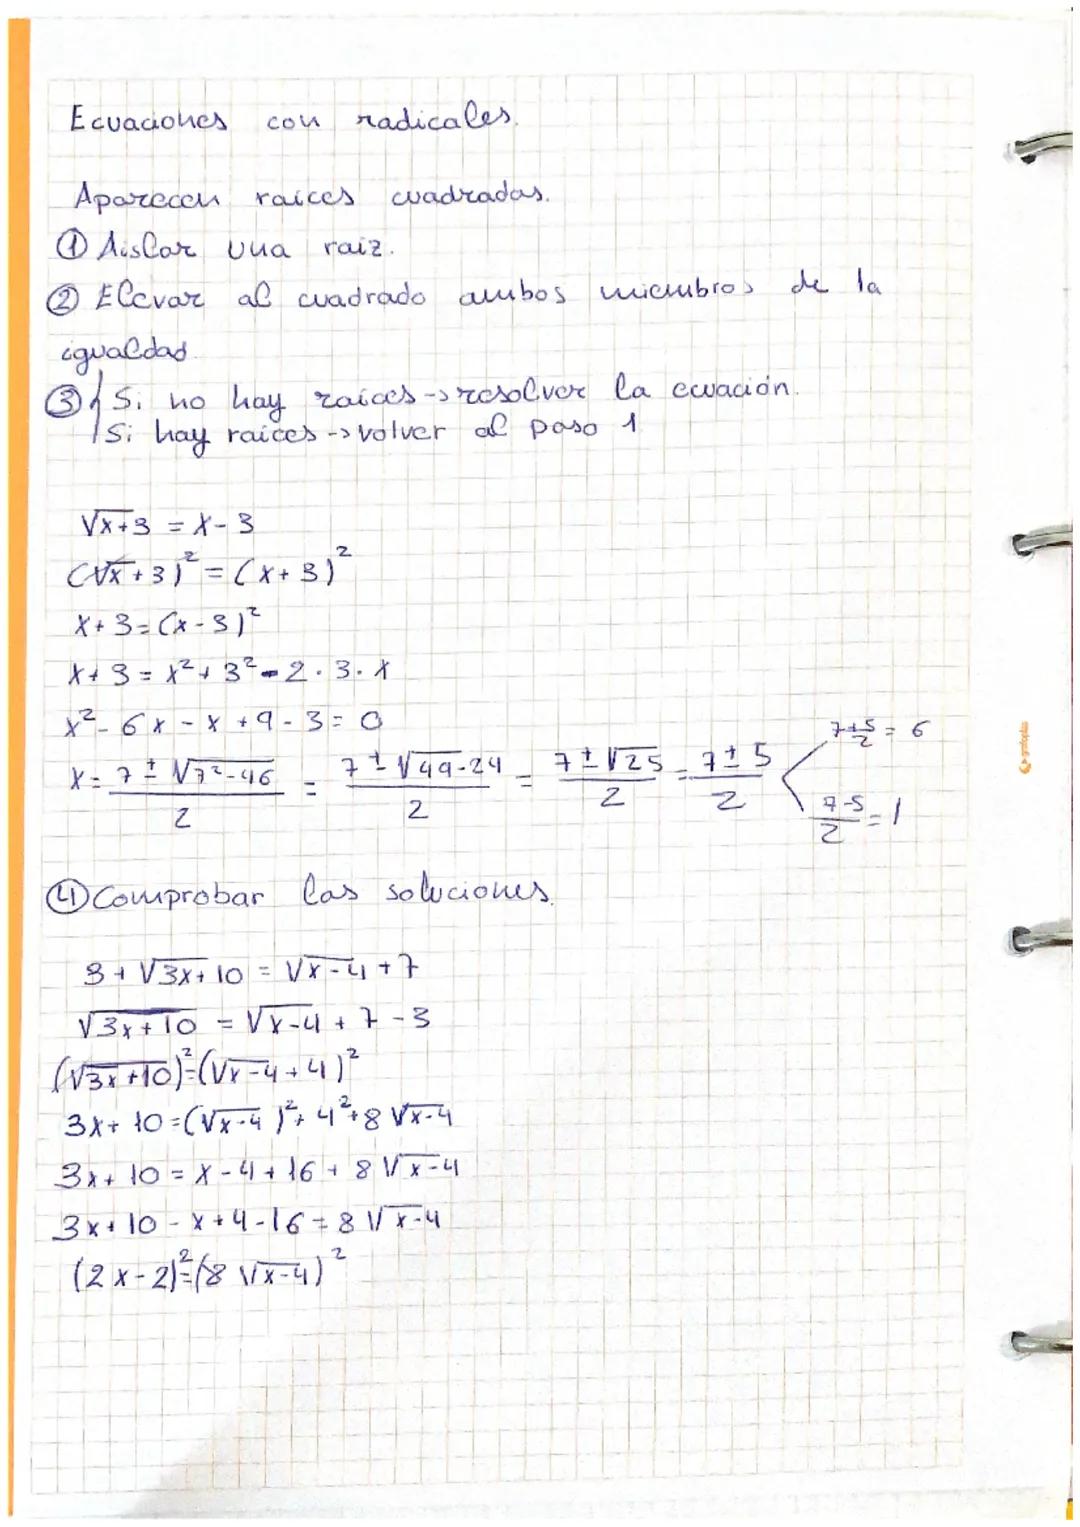 Ecuaciones con radicales.
Aparecen raíces cuadradas.
① Aislar una raiz.
② Elevar al cuadrado ambos miembros de la
igualdad.
③ { Si no hay raíces -> resolver la ecuación.
Si hay raíces -> volver al paso 1
√x+3 = x-3
(√x+3)² = (x+3)²
x+3=(x-3)²
x+3 = x²+3²-2·3·x
x²-6x-x+9-3=0
x= 7±√7²-46 / 2 = 7±√49-24 / 2 = 7±√25 / 2 = 7±5 / 2 < 7+5 / 2 = 6
7-5 / 2 = 1
④ Comprobar las soluciones.
3+√3x+10 = √x-4+7
√3x+10 = √x-4+7-3
(√3x+10)²=(√x-4+4)²
3x+10=(√x-4)²+4²+8√x-4
3x+10=x-4+16+8√x-4
3x+10-x+4-16=8√x-4
(2x-2)²=(8√x-4)²
grafoplas